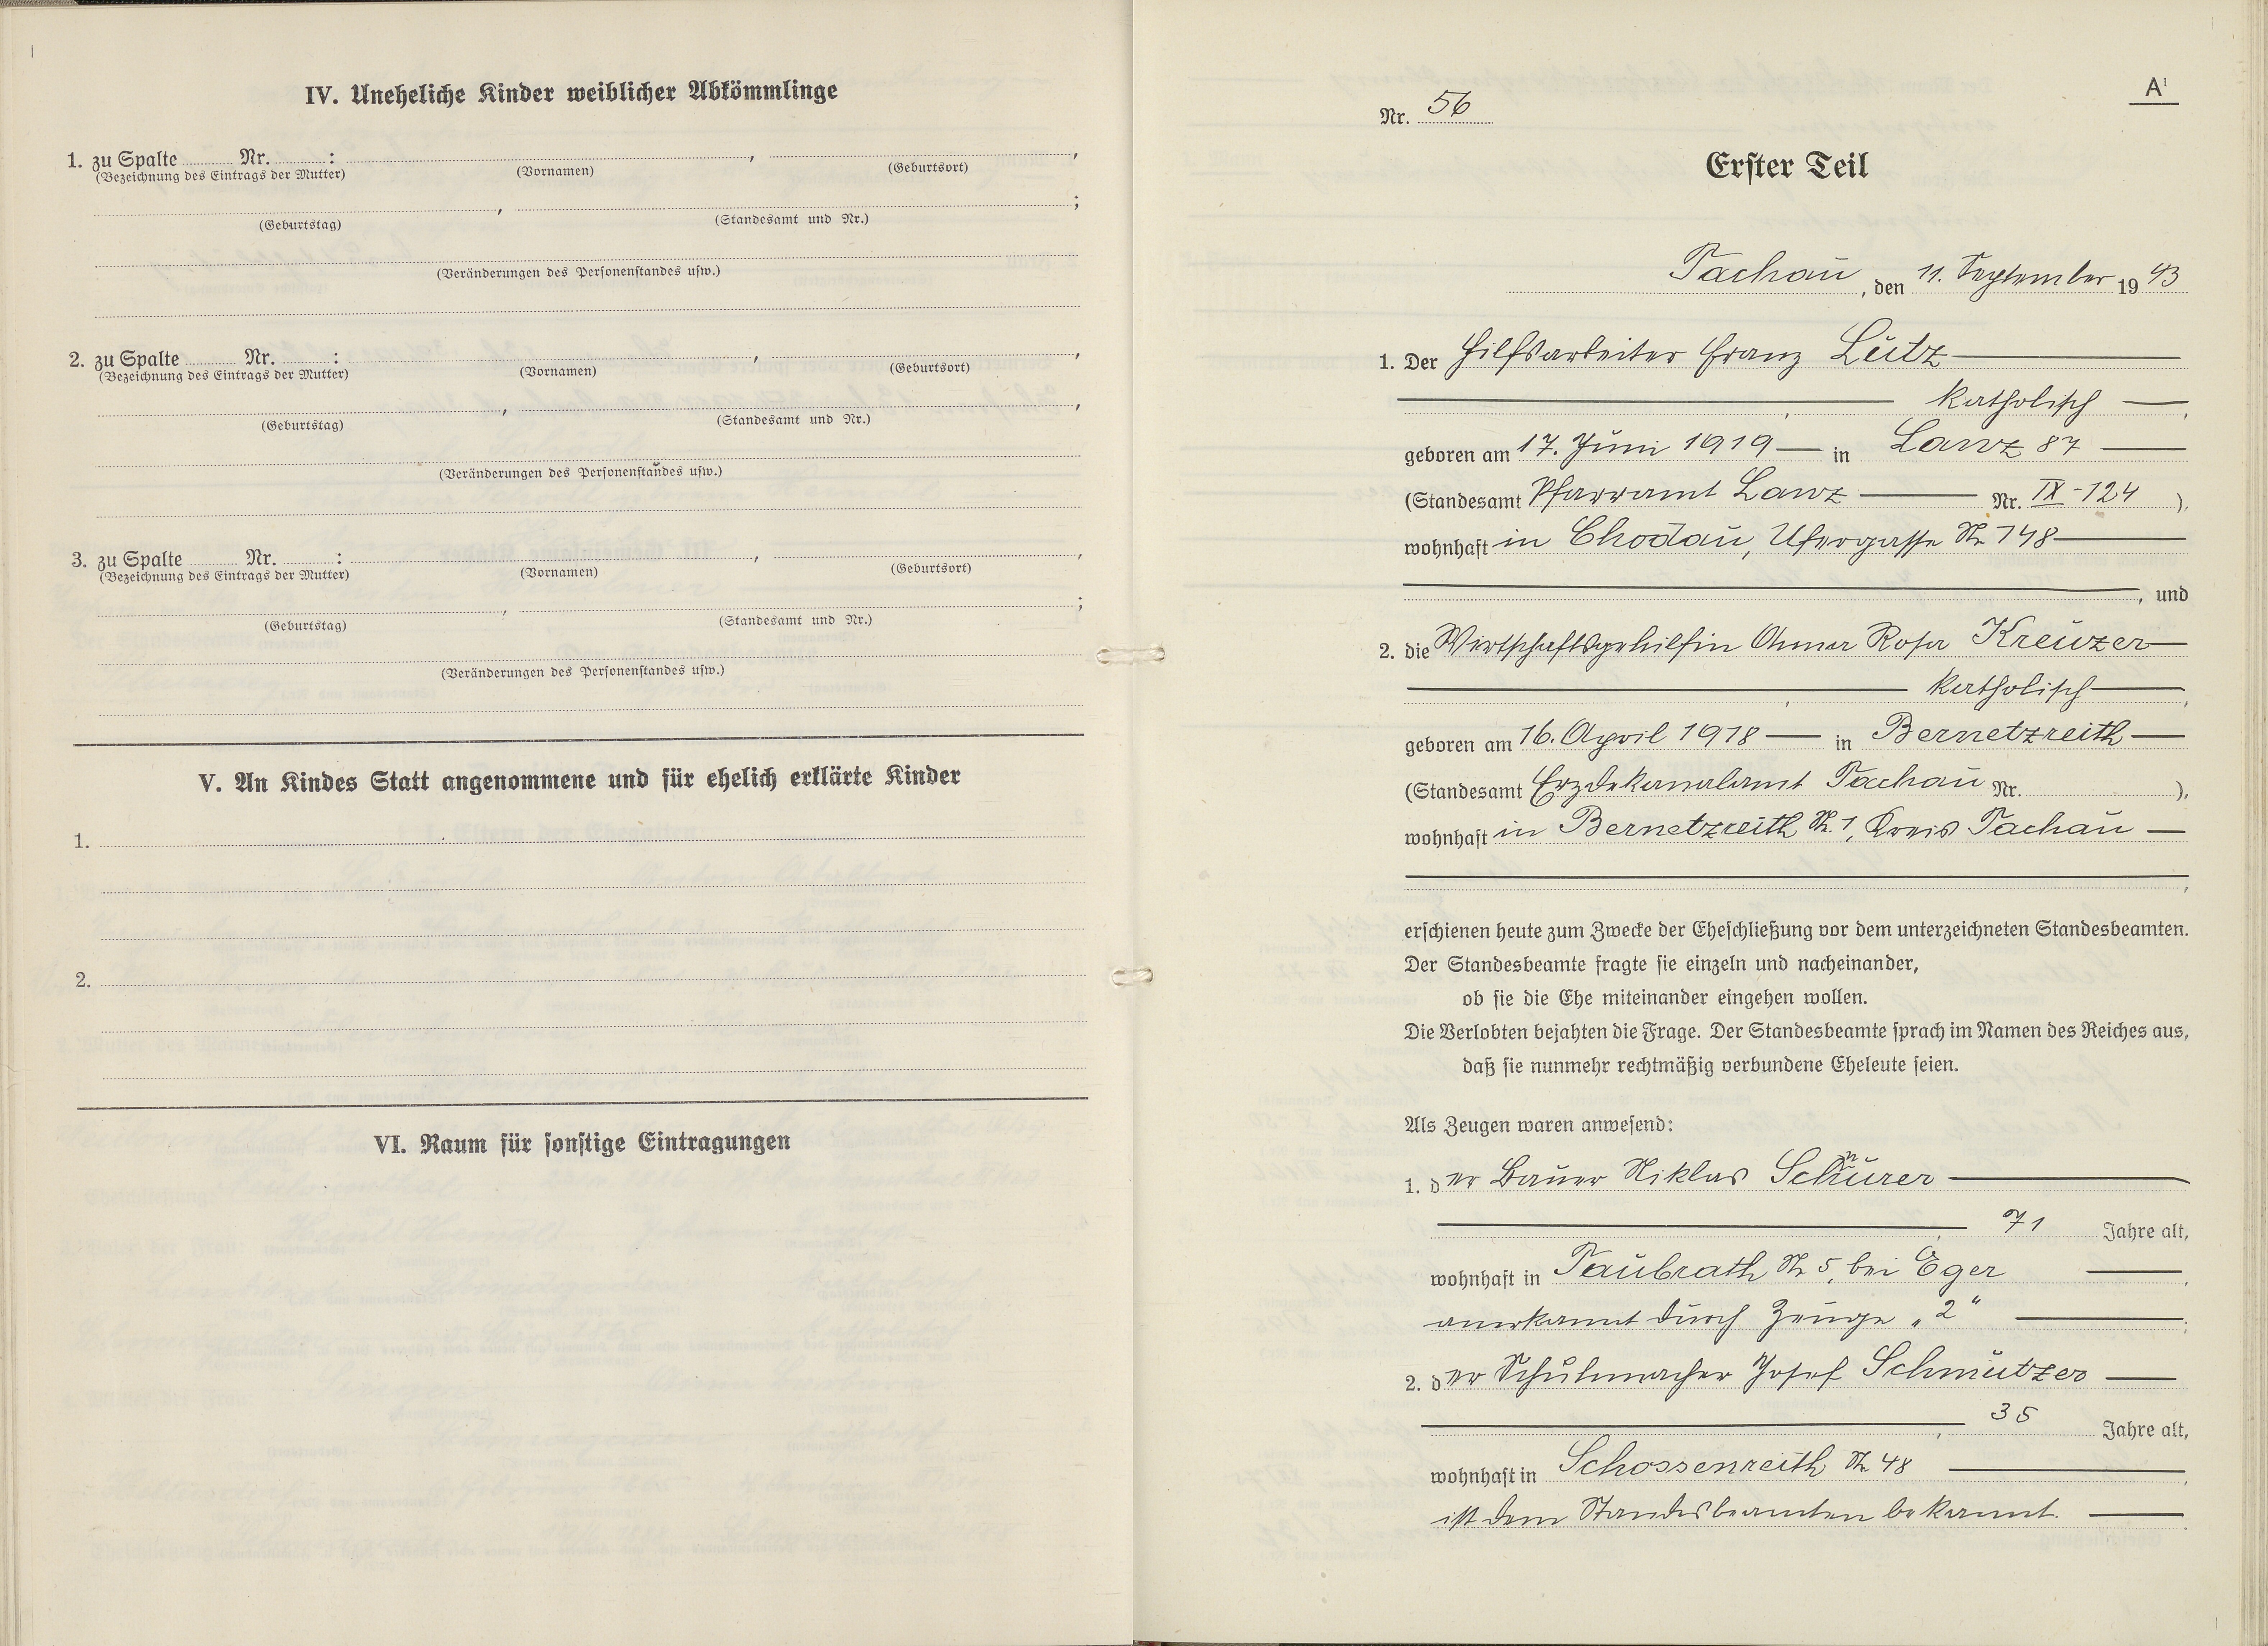 IV. Uneheliche Kinder weiblicher Abkömmlinge
1. zu Spalte Nr. : , ,
(Bezeichnung des Eintrags der Mutter) (Vornamen) (Geburtsort)
, ;
(Geburtstag) (Standesamt und Nr.)
(Veränderungen des Personenstandes usw.)
2. zu Spalte Nr. : , ,
(Bezeichnung des Eintrags der Mutter) (Vornamen) (Geburtsort)
, ,
(Geburtstag) (Standesamt und Nr.)
(Veränderungen des Personenstandes usw.)
3. zu Spalte Nr. : , ,
(Bezeichnung des Eintrags der Mutter) (Vornamen) (Geburtsort)
, ;
(Geburtstag) (Standesamt und Nr.)
(Veränderungen des Personenstandes usw.)
V. An Kindes Statt angenommene und für ehelich erklärte Kinder
1.
2.
VI. Raum für sonstige Eintragungen
A¹
Nr. 56
Erster Teil
Tachau, den 11. September 1943
1. Der Hilfsarbeiter Franz Lutz
katholisch,
geboren am 17. Juni 1919 in Lanz 87
(Standesamt Pfarramt Lanz Nr. IX-124),
wohnhaft in Chodau, Ufergasse Nr. 748
, und
2. die Wirtschaftsgehilfin Anna Rosa Kreuzer
katholisch,
geboren am 16. April 1918 in Bernetzreith
(Standesamt Erzdekanalamt Tachau Nr. ),
wohnhaft in Bernetzreith Nr. 1, Kreis Tachau
,
erschienen heute zum Zwecke der Eheschließung vor dem unterzeichneten Standesbeamten.
Der Standesbeamte fragte sie einzeln und nacheinander,
ob sie die Ehe miteinander eingehen wollen.
Die Verlobten bejahten die Frage. Der Standesbeamte sprach im Namen des Reiches aus,
daß sie nunmehr rechtmäßig verbundene Eheleute seien.
Als Zeugen waren anwesend:
1. der Bauer Niklas Schnurer
, 71 Jahre alt,
wohnhaft in Taubrath Nr 5, bei Eger,
anerkannt durch Zeuge „2“;
2. der Schuhmacher Josef Schmutzer
, 35 Jahre alt,
wohnhaft in Schossenreith Nr 48,
ist dem Standesbeamten bekannt.